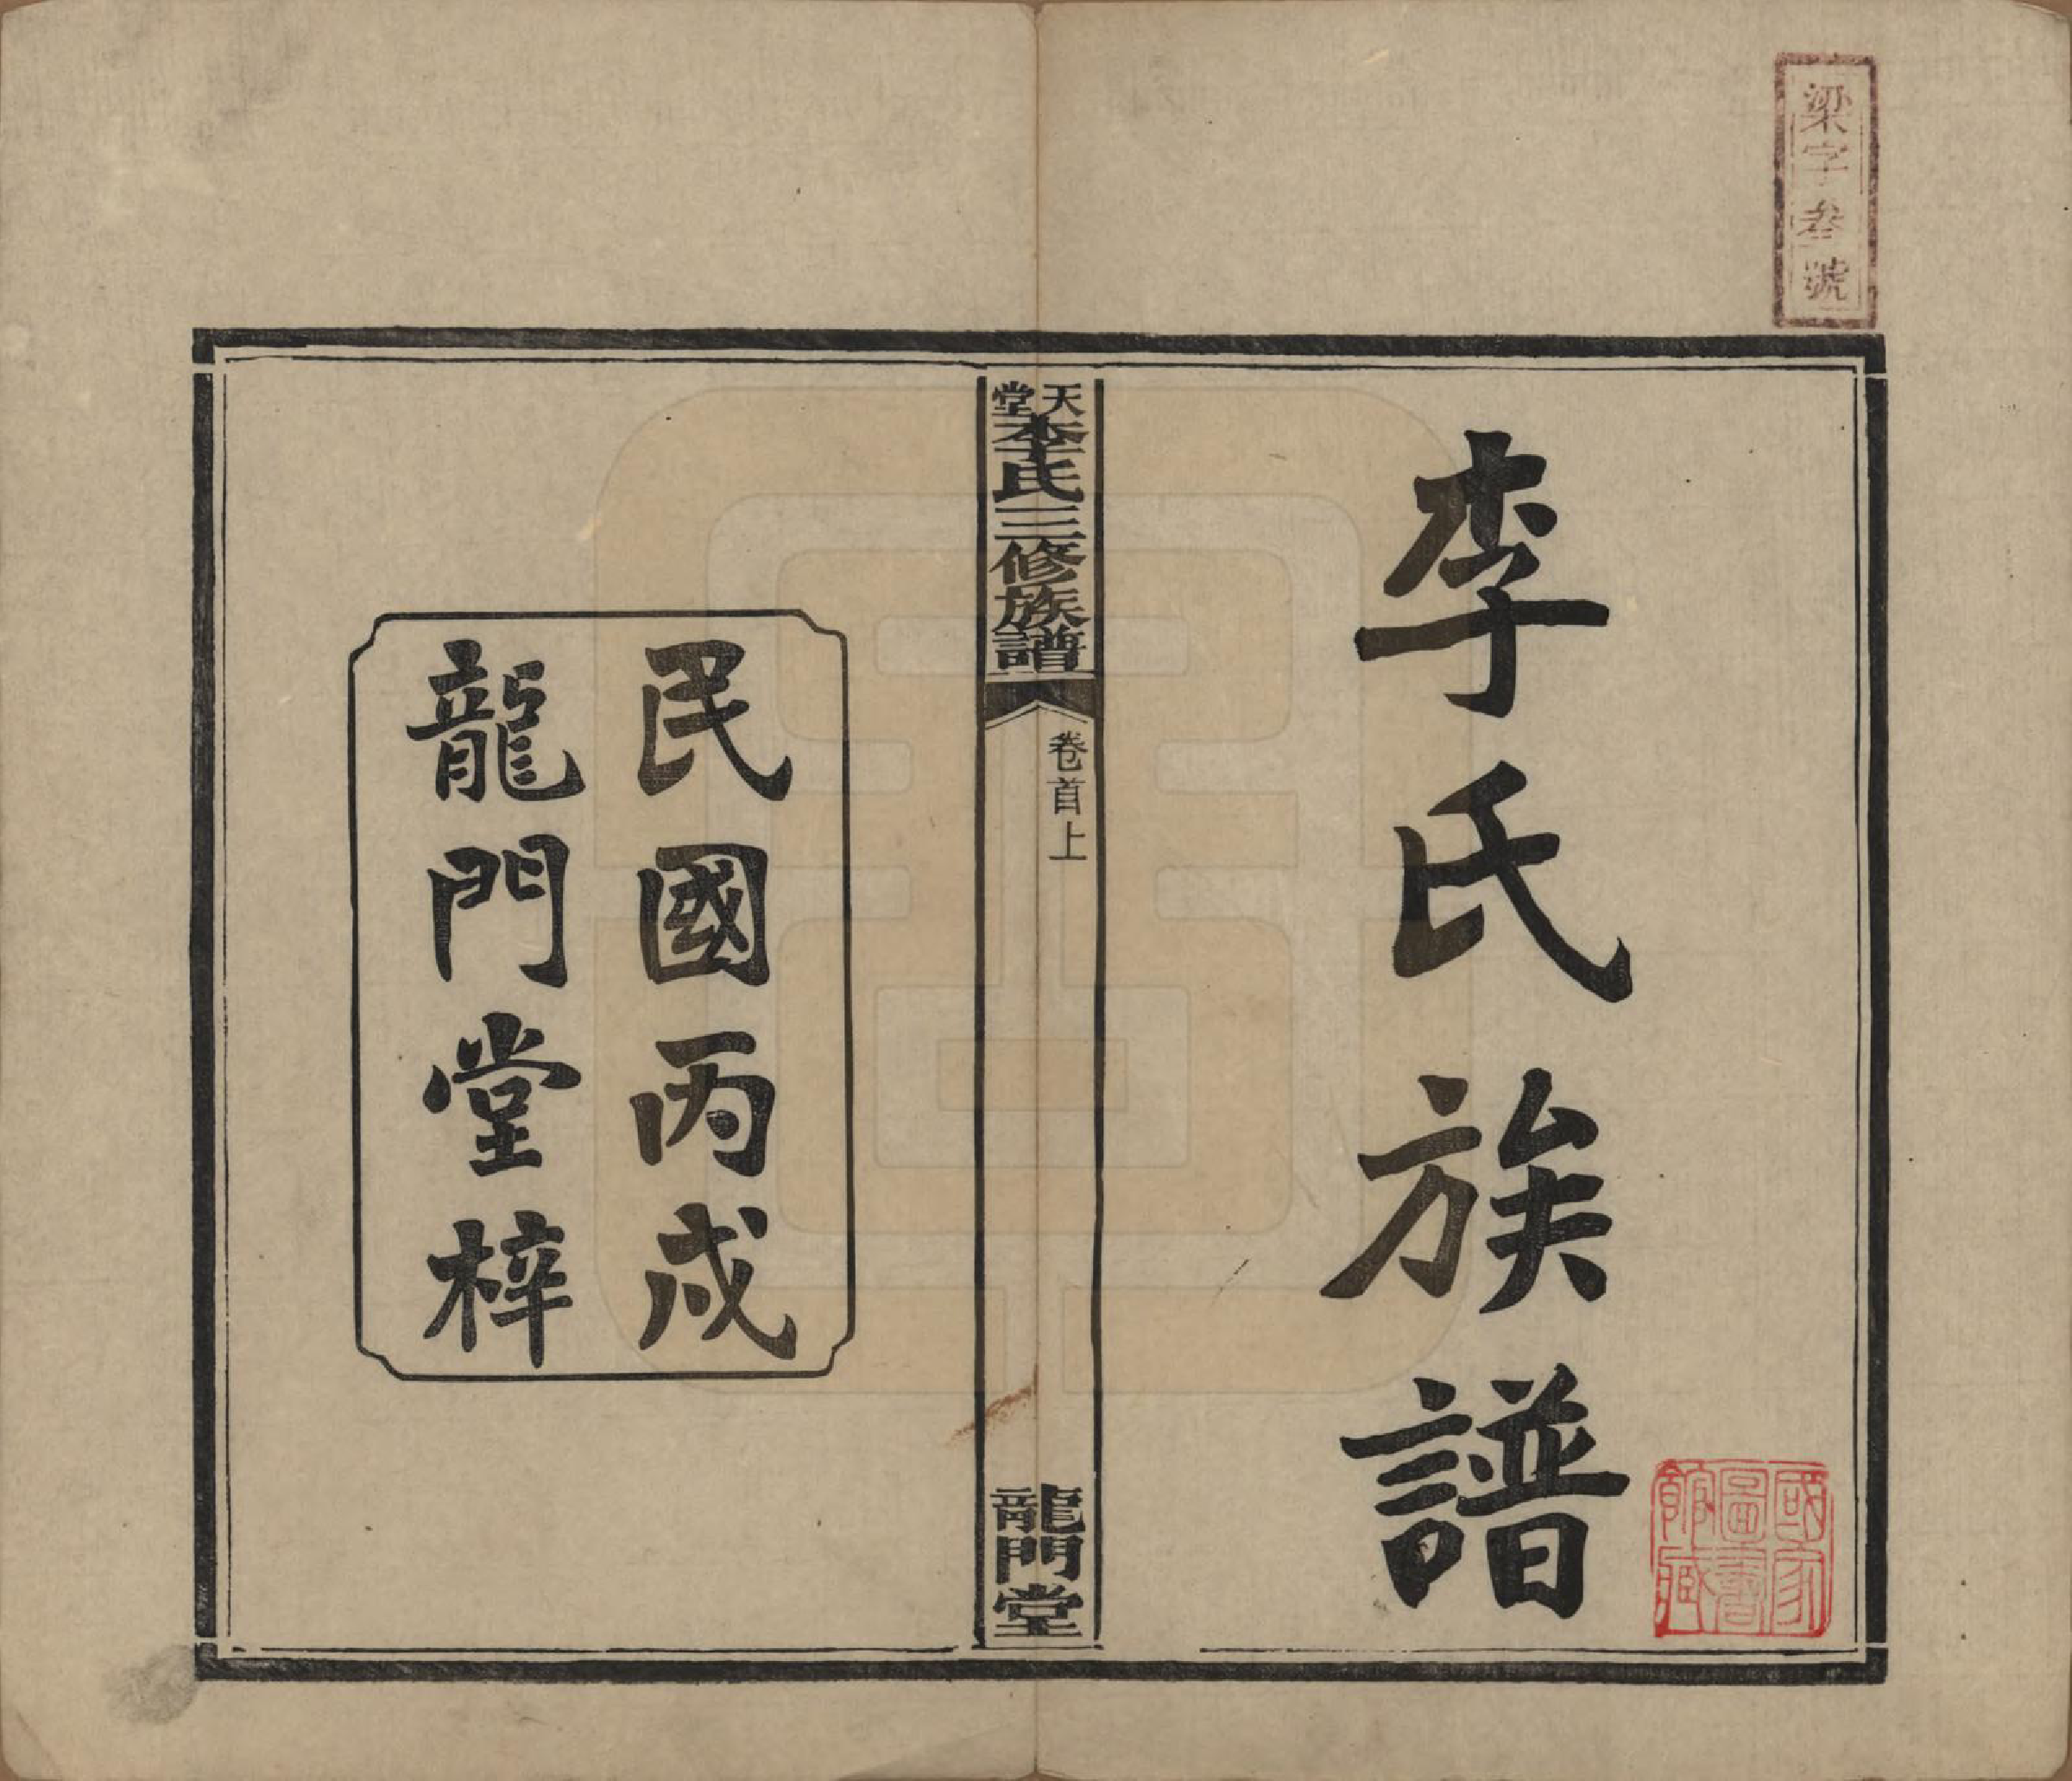 梁字叄號
李氏族譜
國家
圖書
館藏
天堂李氏三修族譜
卷首上
龍門堂
民國丙戌
龍門堂梓